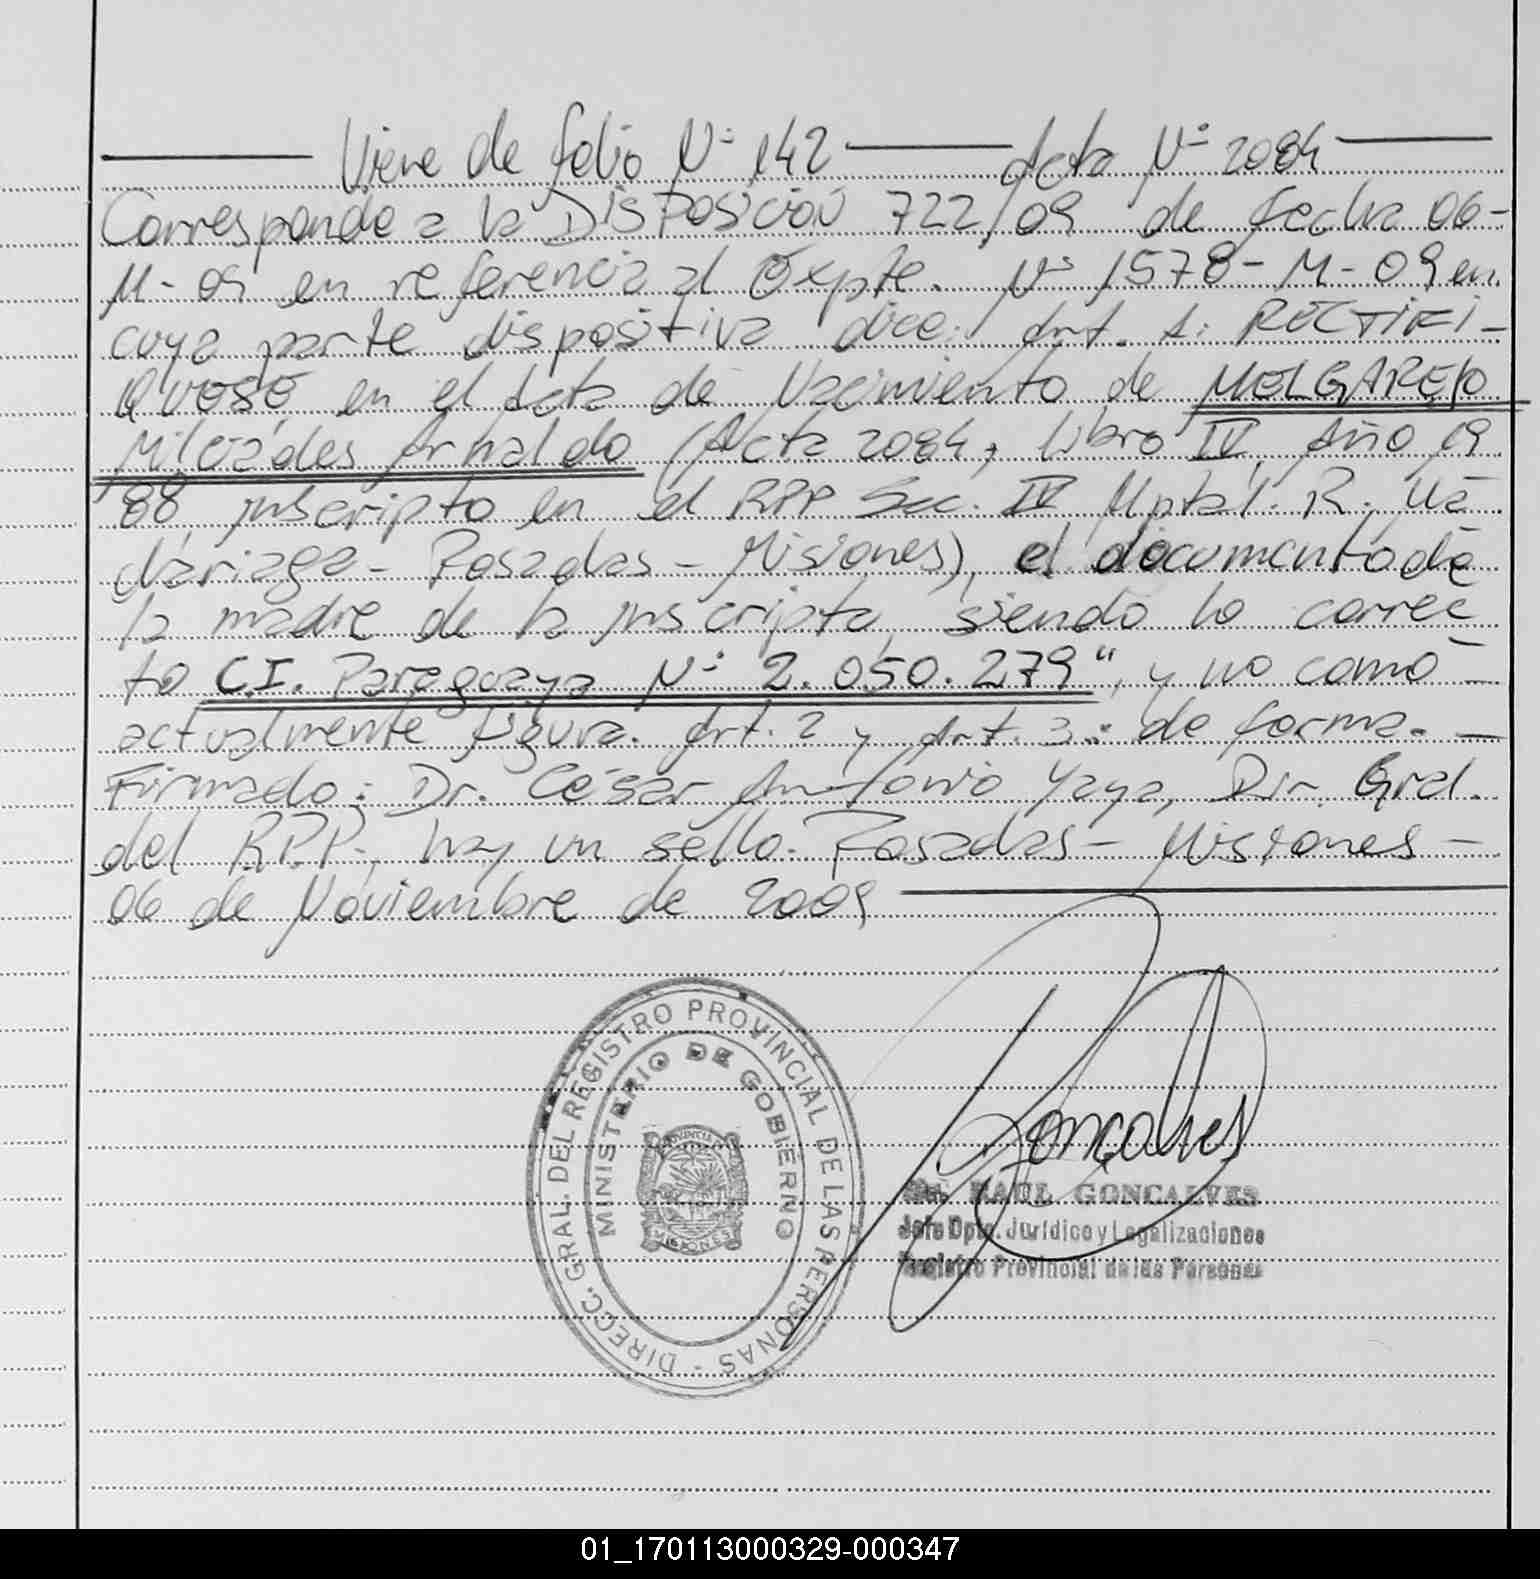 Viene de folio Nº 142 — Acta Nº 2084 —
Corresponde a la DISPOSICIÓN 722/09 de fecha 06-
11-09 en referencia al Expte. Nº 1578-M-09 en
cuya parte dispositiva dice: Art. 1: RECTIFI-
QUESE en el Acta de Nacimiento de MELGAREJO
Milciades Arnaldo (Acta 2084, Libro IV, Año 19
88, inscripto en el RPP Sec. IV Hptal. R. Ma
dariaga - Posadas - Misiones), el documento de
la madre de la inscripta, siendo lo correc
to C.I. Paraguaya Nº 2.050.279", y no como
actualmente figura. Art. 2 y Art. 3: de forma. —
Firmado: Dr. César Antonio Yaya, Dir. Gral.
del R.P.P., hay un sello. Posadas - Misiones -
06 de Noviembre de 2009
DIRECC. GRAL. DEL REGISTRO PROVINCIAL DE LAS PERSONAS -
MINISTERIO DE GOBIERNO
PROVINCIA DE
MISIONES
Goncalves
RAUL GONCALVES
Jefe Dpto. Jurídico y Legalizaciones
Registro Provincial de las Personas
01_170113000329-000347